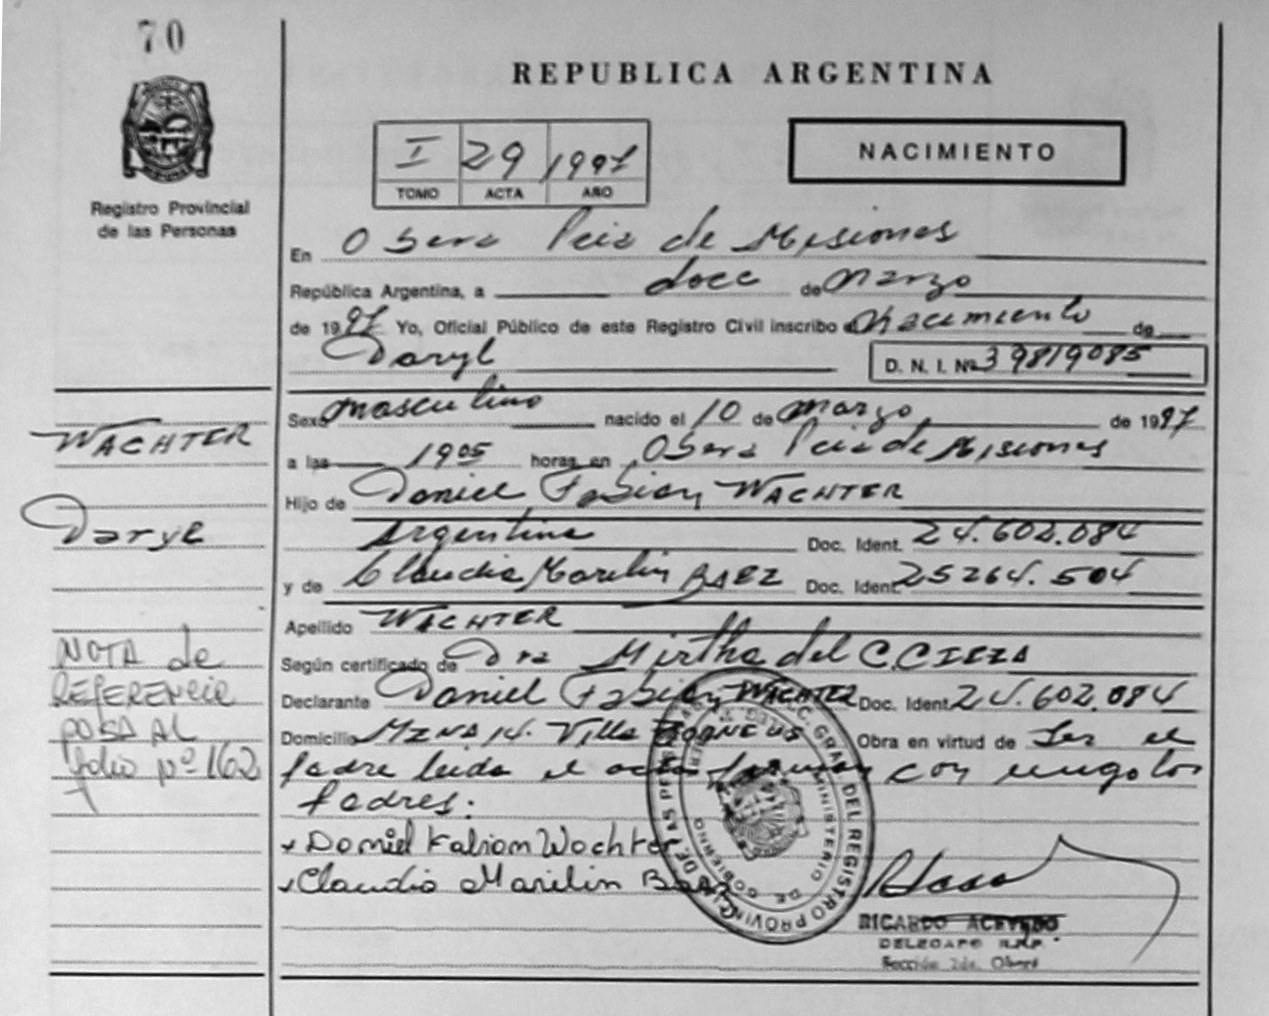 70
REPUBLICA ARGENTINA
I 29 1997
TOMO ACTA AÑO
NACIMIENTO
Registro Provincial
de las Personas
En Obera Pcia de Misiones
República Argentina, a doce de Marzo
de 1997 Yo, Oficial Público de este Registro Civil inscribo el Nacimiento de
Daryl
D. N. I. Nº 39819085
Sexo masculino nacido el 10 de Marzo de 1997
WACHTER
a las 1905 horas en Obera Pcia de Misiones
Hijo de Daniel Fabian WACHTER
Daryl
Argentina Doc. Ident. 24.602.084
y de Claudia Marilin BAEZ Doc. Ident. 25264.504
Apellido WACHTER
NOTA de
REFERENCIA
PASA AL
folio nº 162
Según certificado de Dra Mirtha del C. CIEZA
Declarante Daniel Fabian WACHTER Doc. Ident. 24.602.084
Domicilio MZNA 14. Villa Obra en virtud de Ser el
padre leida el acta firman con migo los
padres.
Daniel Fabian Wachter
Claudia Marilin Baez
DIREC. GRAL. DEL REGISTRO PROVINCIAL DE LAS PERSONAS
MINISTERIO DE GOBIERNO
RICARDO ACEVEDO
DELEGADO R.P.P.
Sección 2da. Oberá